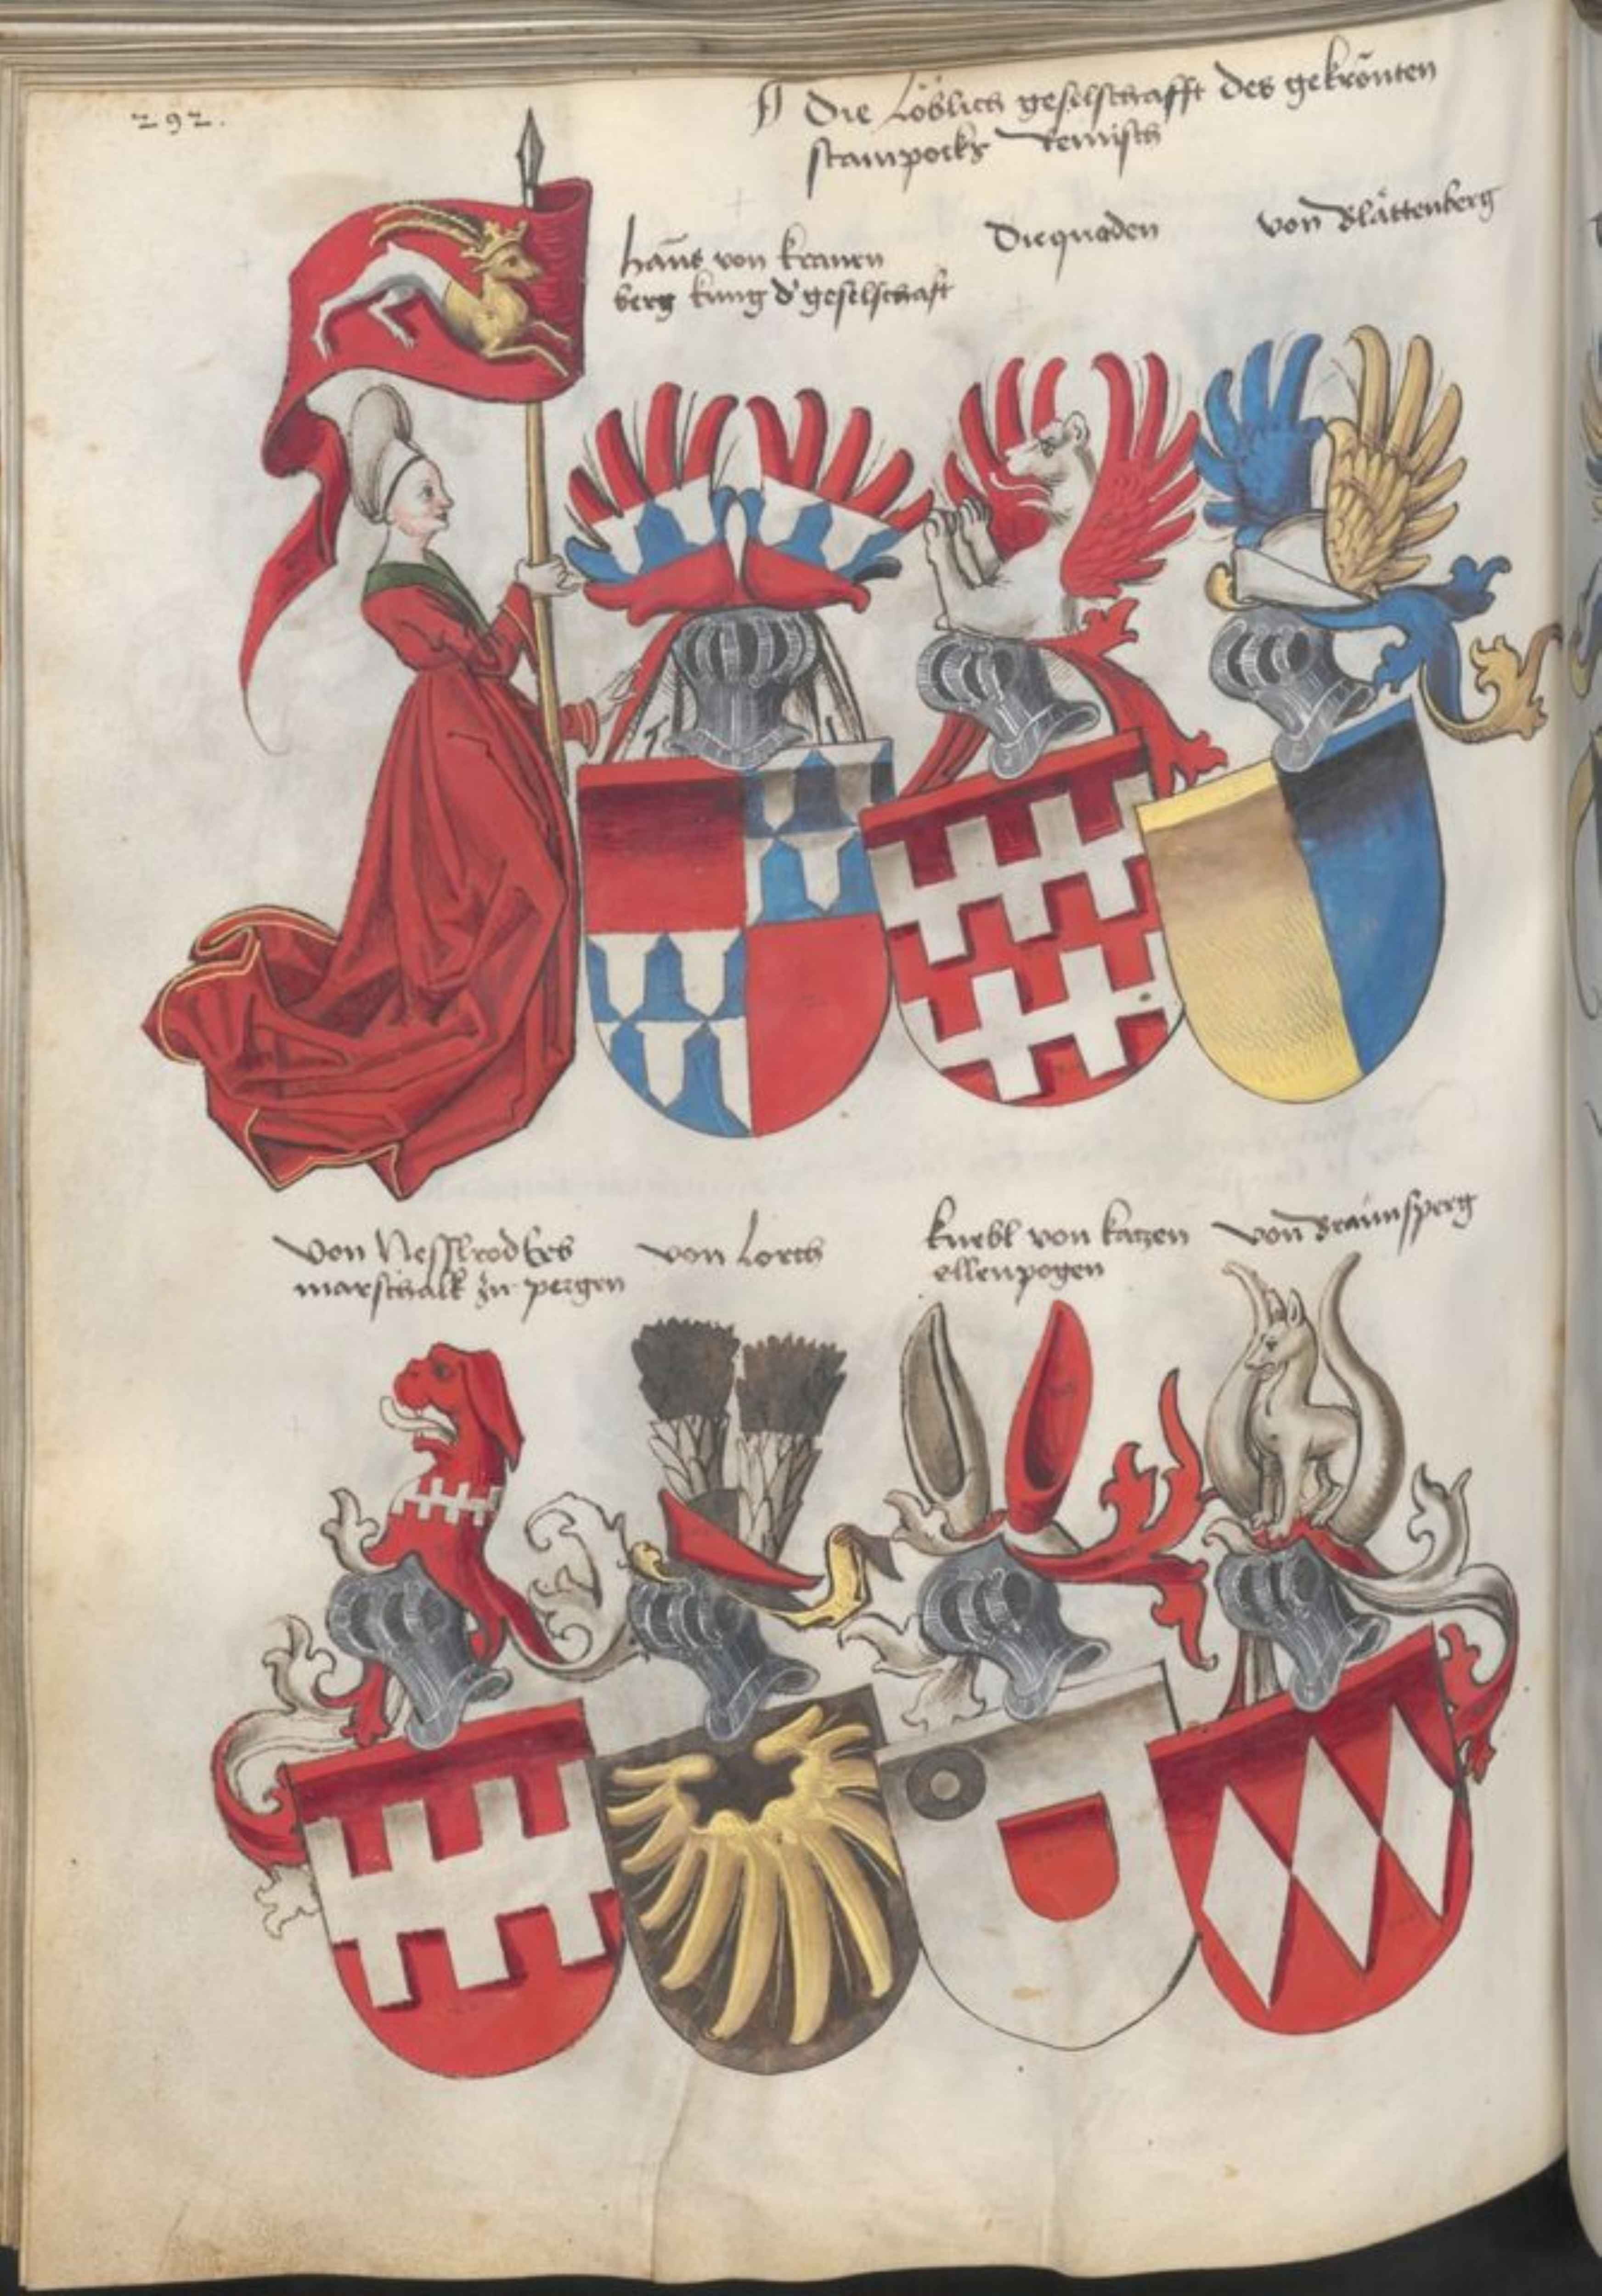 292.
Die Löblich geselschafft des gekrönten
stainpocks Reinisch
Hanns von kranen
berg kunig d' geselschaft
Die quaden
von Blättenberg
von Nesselrod Erb
marschalk zu pergen
von Lorch
knebl von katzen
ellenpogen
von Braunsperg